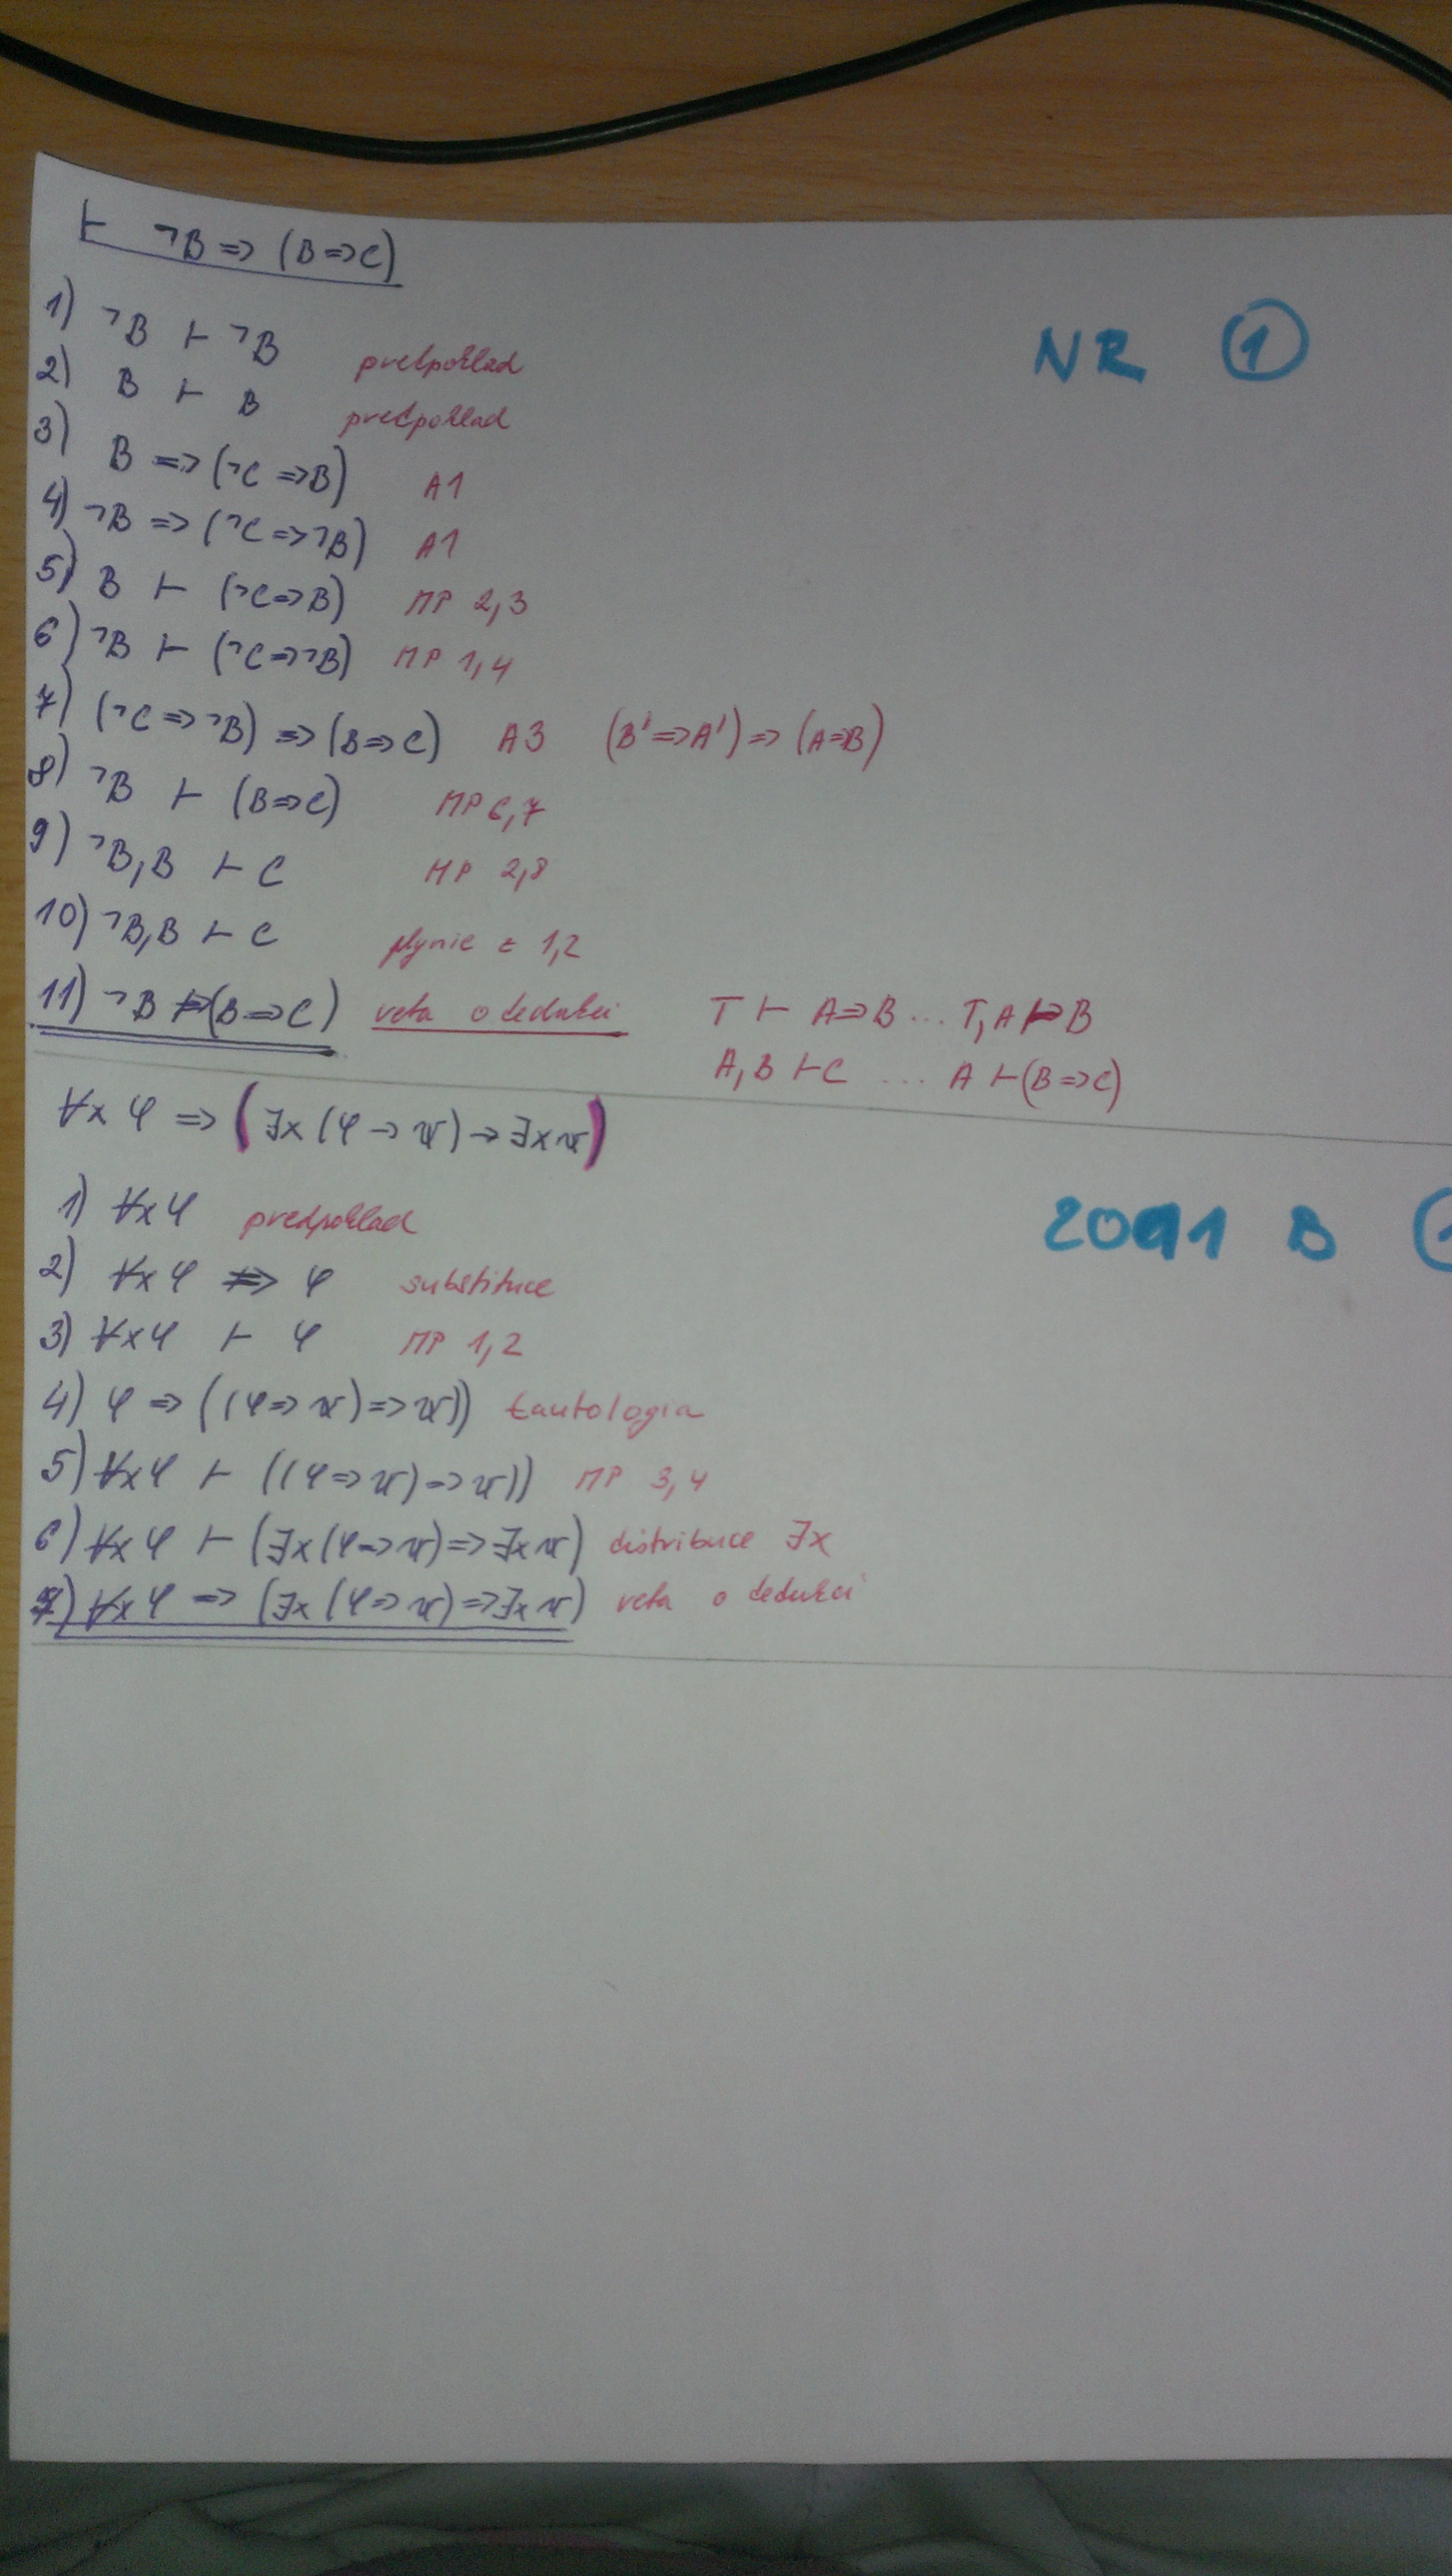 ⊢ ¬B => (B=>C)
NR ①
1) ¬B ⊢ ¬B predpoklad
2) B ⊢ B predpoklad
3) B => (¬C =>B) A1
4) ¬B => (¬C=>¬B) A1
5) B ⊢ (¬C=>B) MP 2,3
6) ¬B ⊢ (¬C=>¬B) MP 1,4
7) (¬C=>¬B) => (B=>C) A3 (B'=>A') => (A=>B)
8) ¬B ⊢ (B=>C) MP 6,7
9) ¬B,B ⊢ C MP 2,8
10) ¬B,B ⊢ C plynie z 1,2
11) ¬B => (B=>C) veta o dedukci T ⊢ A=>B ... T, A ⊢ B
A, B ⊢ C ... A ⊢ (B=>C)
∀x φ => (∃x (φ → ψ) → ∃x ψ)
2011 B
1) ∀x φ predpoklad
2) ∀x φ => φ substituce
3) ∀x φ ⊢ φ MP 1,2
4) φ => ((φ=> ψ)=> ψ)) tautologia
5) ∀x φ ⊢ ((φ=> ψ)=> ψ)) MP 3,4
6) ∀x φ ⊢ (∃x (φ=> ψ)=>∃x ψ) distribuce ∃x
7) ∀x φ => (∃x (φ=> ψ)=>∃x ψ) veta o dedukci